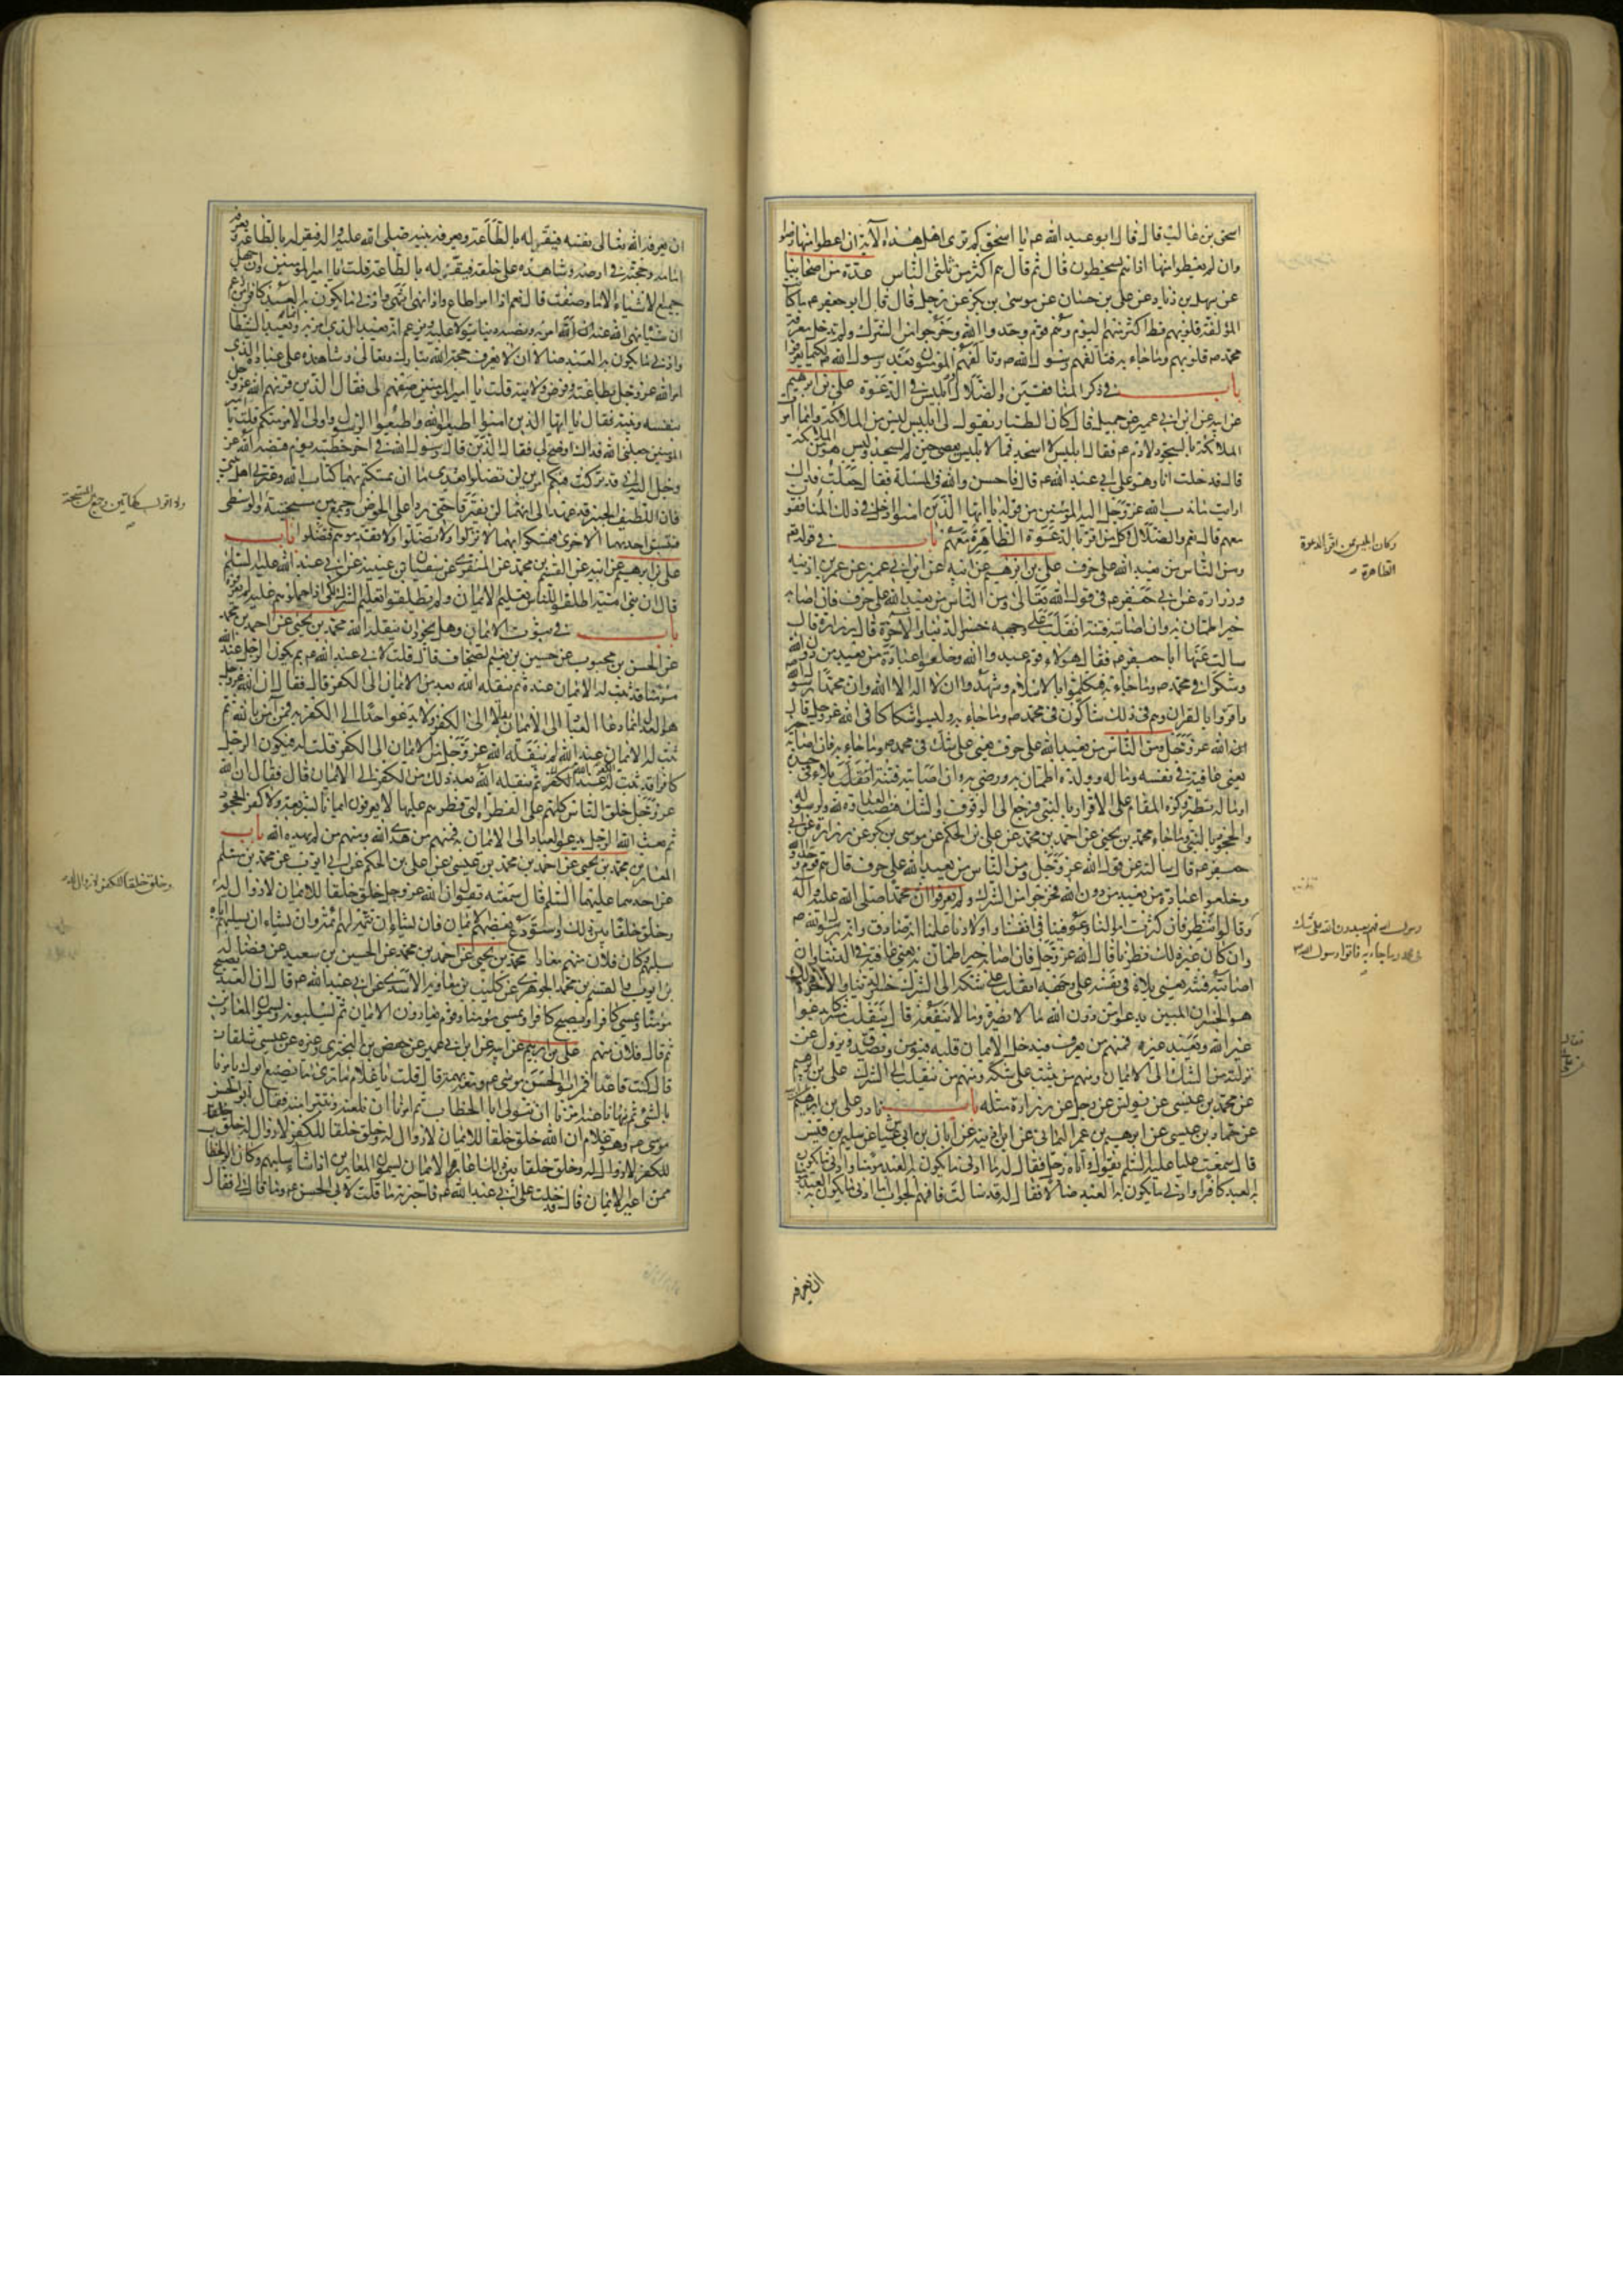 اسحق بن غالب قال قال ابو عبد الله ع يا اسحق كم ترى اهل هذه الآية ان اعطوا منها رضوا
وان لم يعطوا منها اذا هم يسخطون قال ثم قال هم اكثر من ثلثي الناس عدة من اصحابنا
عن سهل بن زياد عن علي بن حسان عن موسى بن بكر عن رجل قال قال ابو جعفر ع ما كانت
المؤلفة قلوبهم قط اكثر منهم اليوم وهم قوم وحدوا الله وخرجوا من الشرك ولم تدخل معرفة
محمد ص قلوبهم وما جاء به فتألفهم رسول الله ص وتألفهم المؤمنون بعد رسول الله ص لكيما يعرفوا
باب في ذكر المنافقين والضلال وابليس في الدعوة علي بن ابرهيم
عن ابيه عن ابن ابي عمير عن جميل قال كان الطيار يقول لي ابليس ليس من الملائكة وانما امرت
الملائكة بالسجود لآدم ع فقال ابليس لا اسجد فما لابليس يعصي حين لم يسجد وليس هو من الملائكة
قال فدخلت انا وهو على ابي عبد الله ع قال فاحسن والله في المسئلة فقال جعلت فداك
ارايت ما ندب الله عز وجل اليه المؤمنين من قوله يا ايها الذين امنوا ادخل في ذلك المنافقون
معهم قال نعم والضلال وكل من اقر بالدعوة الظاهرة معهم باب في قوله تع
ومن الناس من يعبد الله على حرف علي بن ابرهيم عن ابيه عن ابن ابي عمير عن عمر بن اذينة
وزرارة عن ابي جعفر ع في قول الله تعالى ومن الناس من يعبد الله على حرف فان اصابه
خير اطمان به وان اصابته فتنة انقلب على وجهه خسر الدنيا والآخرة قال زرارة قال
سالت عنها ابا جعفر ع فقال هؤلاء قوم عبدوا الله وخلعوا عبادة من يعبد من دون الله
وشكوا في محمد ص وما جاء به فتكلموا بالاسلام وشهدوا ان لا اله الا الله وان محمدا رسول الله
واقروا بالقران وهم في ذلك شاكون في محمد ص وما جاء به وليسوا شكاكا في الله عز وجل قال
الله عز وجل ومن الناس من يعبد الله على حرف يعني على شك في محمد ص وما جاء به فان اصابه خير
يعني عافية في نفسه وماله وولده اطمان به ورضي به وان اصابته فتنة انقلب بلاء في جسده
او ماله تطير وكره المقام على الاقرار بالنبي فرجع الى الوقوف والشك فنصب العداوة لله ولرسوله
والجحود بالنبي وما جاء به محمد بن يحيى عن احمد بن محمد عن علي بن الحكم عن موسى بن بكر عن زرارة عن ابي
جعفر ع قال سالته عن قول الله عز وجل ومن الناس من يعبد الله على حرف قال هم قوم وحدوا الله
وخلعوا عبادة من يعبد من دون الله فخرجوا من الشرك ولم يعرفوا ان محمدا صلى الله عليه وآله
وقالوا ننظر فان كثرت اموالنا وعوفينا في انفسنا واولادنا علمنا انه صادق وانه رسول الله ص
وان كان غير ذلك نظرنا قال الله عز وجل فان اصابه خير اطمان به يعني عافية في الدنيا وان
اصابته فتنة يعني بلاء في نفسه على وجهه انقلب على شكه الى الشرك خسر الدنيا والآخرة ذلك
هو الخسران المبين يدعوا من دون الله ما لا يضره وما لا ينفعه قال ينقلب مشركا يدعوا
غير الله ويعبد غيره فمنهم من يعرف فيدخل الايمان قلبه فيؤمن ويصدق ويزول عن
منزلته من الشك الى الايمان ومنهم من يثبت على شكه ومنهم من ينقلب الى الشرك علي بن ابرهيم
عن محمد بن عيسى عن يونس عن رجل عن زرارة مثله باب نادر علي بن ابرهيم
عن حماد بن عيسى عن ابرهيم بن عمر اليماني عن ابن اذينة عن ابان بن ابي عياش عن سليم بن قيس
قال سمعت عليا عليه السلم يقول واتاه رجل فقال له ما ادنى ما يكون به العبد مؤمنا وادنى ما يكون
به العبد كافرا وادنى ما يكون به العبد ضالا فقال له قد سالت فافهم الجواب اما ادنى ما يكون به العبد مؤمنا
ان يعرفه
وكان ابليس ممن اقر بالدعوة
الظاهرة
رسول الله فهم يعبدون الله على شك
في محمد وما جاء به فاتوا رسول الله ص
ان يعرفه الله تعالى نفسه فيقر له بالطاعة ويعرفه نبيه صلى الله عليه واله فيقر له بالطاعة ويعرفه
امامه وحجته في ارضه وشاهده على خلقه فيقر له بالطاعة قلت يا امير المؤمنين وان جهل
جميع الاشياء الا ما وصفت قال نعم اذا امر اطاع واذا نهي انتهى وادنى ما يكون به العبد كافرا من زعم
ان شيئا نهى الله عنه ان الله امر به ونصبه دينا يتولى عليه ويزعم انه يعبد الذي امره به وانما يعبد الشيطان
وادنى ما يكون به العبد ضالا ان لا يعرف حجة الله تبارك وتعالى وشاهده على عباده الذي
امر الله عز وجل بطاعته وفرض ولايته قلت يا امير المؤمنين صفهم لي فقال الذين قرنهم الله عز وجل
بنفسه ونبيه فقال يا ايها الذين امنوا اطيعوا الله واطيعوا الرسول واولي الامر منكم قلت يا امير
المؤمنين جعلني الله فداك اوضح لي فقال الذين قال رسول الله في آخر خطبته يوم قبضه الله عز
وجل اليه اني قد تركت فيكم امرين لن تضلوا بعدي ما ان تمسكتم بهما كتاب الله وعترتي اهل بيتي
فان اللطيف الخبير قد عهد الى انهما لن يفترقا حتى يردا على الحوض وجمع بين مسبحته والوسطى
فتسبق احديهما الاخرى فتمسكوا بهما لا تزلوا ولا تضلوا ولا تقدموهم فتضلوا باب
علي بن ابرهيم عن ابيه عن القسم بن محمد عن المنقري عن سفيان بن عيينة عن ابي عبد الله عليه السلم
قال ان بني امية اطلقوا للناس تعليم الايمان ولم يطلقوا تعليم الشرك لكي اذا حملوهم عليه لم يعرفوه
باب في ثبوت الايمان وهل يجوز ان ينقله الله محمد بن يحيى عن احمد بن محمد
عن الحسن بن محبوب عن حسين بن نعيم الصحاف قال قلت لابي عبد الله ع لم يكون الرجل عند الله
مؤمنا قد ثبت له الايمان عنده ثم ينقله الله بعد من الايمان الى الكفر قال فقال ان الله عز وجل
هو العدل انما دعا العباد الى الايمان به لا الى الكفر ولا يدعوا احدا الى الكفر به فمن آمن بالله ثم
ثبت له الايمان عند الله لم ينقله الله عز وجل من الايمان الى الكفر قلت له فيكون الرجل
كافرا قد ثبت له الكفر عند الله ثم ينقله الله بعد ذلك من الكفر الى الايمان قال فقال ان الله
عز وجل خلق الناس كلهم على الفطرة التي فطرهم عليها لا يعرفون ايمانا بشريعة ولا كفر الجحود
ثم بعث الله الرسل يدعو العباد الى الايمان به فمنهم من هدى الله ومنهم من لم يهده الله باب
المعارين محمد بن يحيى عن احمد بن محمد بن عيسى عن علي بن الحكم عن ابي ايوب عن محمد بن مسلم
عن احدهما عليهما السلم قال سمعته يقول ان الله عز وجل خلق خلقا للايمان لا زوال له
وخلق خلقا بين ذلك واستودع بعضهم الايمان فان يشاء ان يتمه لهم اتمه وان يشاء ان يسلبهم اياه
سلبهم وكان فلان منهم معارا محمد بن يحيى عن احمد بن محمد عن الحسين بن سعيد عن فضالة
بن ايوب والقسم بن محمد الجوهري عن كليب بن معاوية الاسدي عن ابي عبد الله ع قال ان العبد يصبح
مؤمنا ويمسي كافرا ويصبح كافرا ويمسي مؤمنا وقوم يعارون الايمان ثم يسلبونه ويسمون المعارين
ثم قال فلان منهم علي بن ابرهيم عن ابيه عن ابن ابي عمير عن حفص بن البختري وغيره عن عيسى شلقان
قال كنت قاعدا فمر ابو الحسن موسى ع ومعه بهمة قال قلت يا غلام ما ترى ما يصنع ابوك يامرنا
بالشئ ثم ينهانا عنه امرنا ان نتولى ابا الخطاب ثم امرنا ان نلعنه ونتبرا منه فقال ابو الحسن
موسى ع وهو غلام ان الله خلق خلقا للايمان لا زوال له وخلق خلقا للكفر لا زوال له وخلق خلقا
للكفر لا زوال له وخلق خلقا بين ذلك اعاره الايمان يسمون المعارين اذا شاء سلبهم وكان ابو الخطاب
ممن اعير الايمان قال فدخلت على ابي عبد الله ع فاخبرته ما قلت لابي الحسن ع وما قال لي فقال
ولا اقول كهاتين وجمع بين المسبحة
وخلق خلقا للكفر لا زوال له